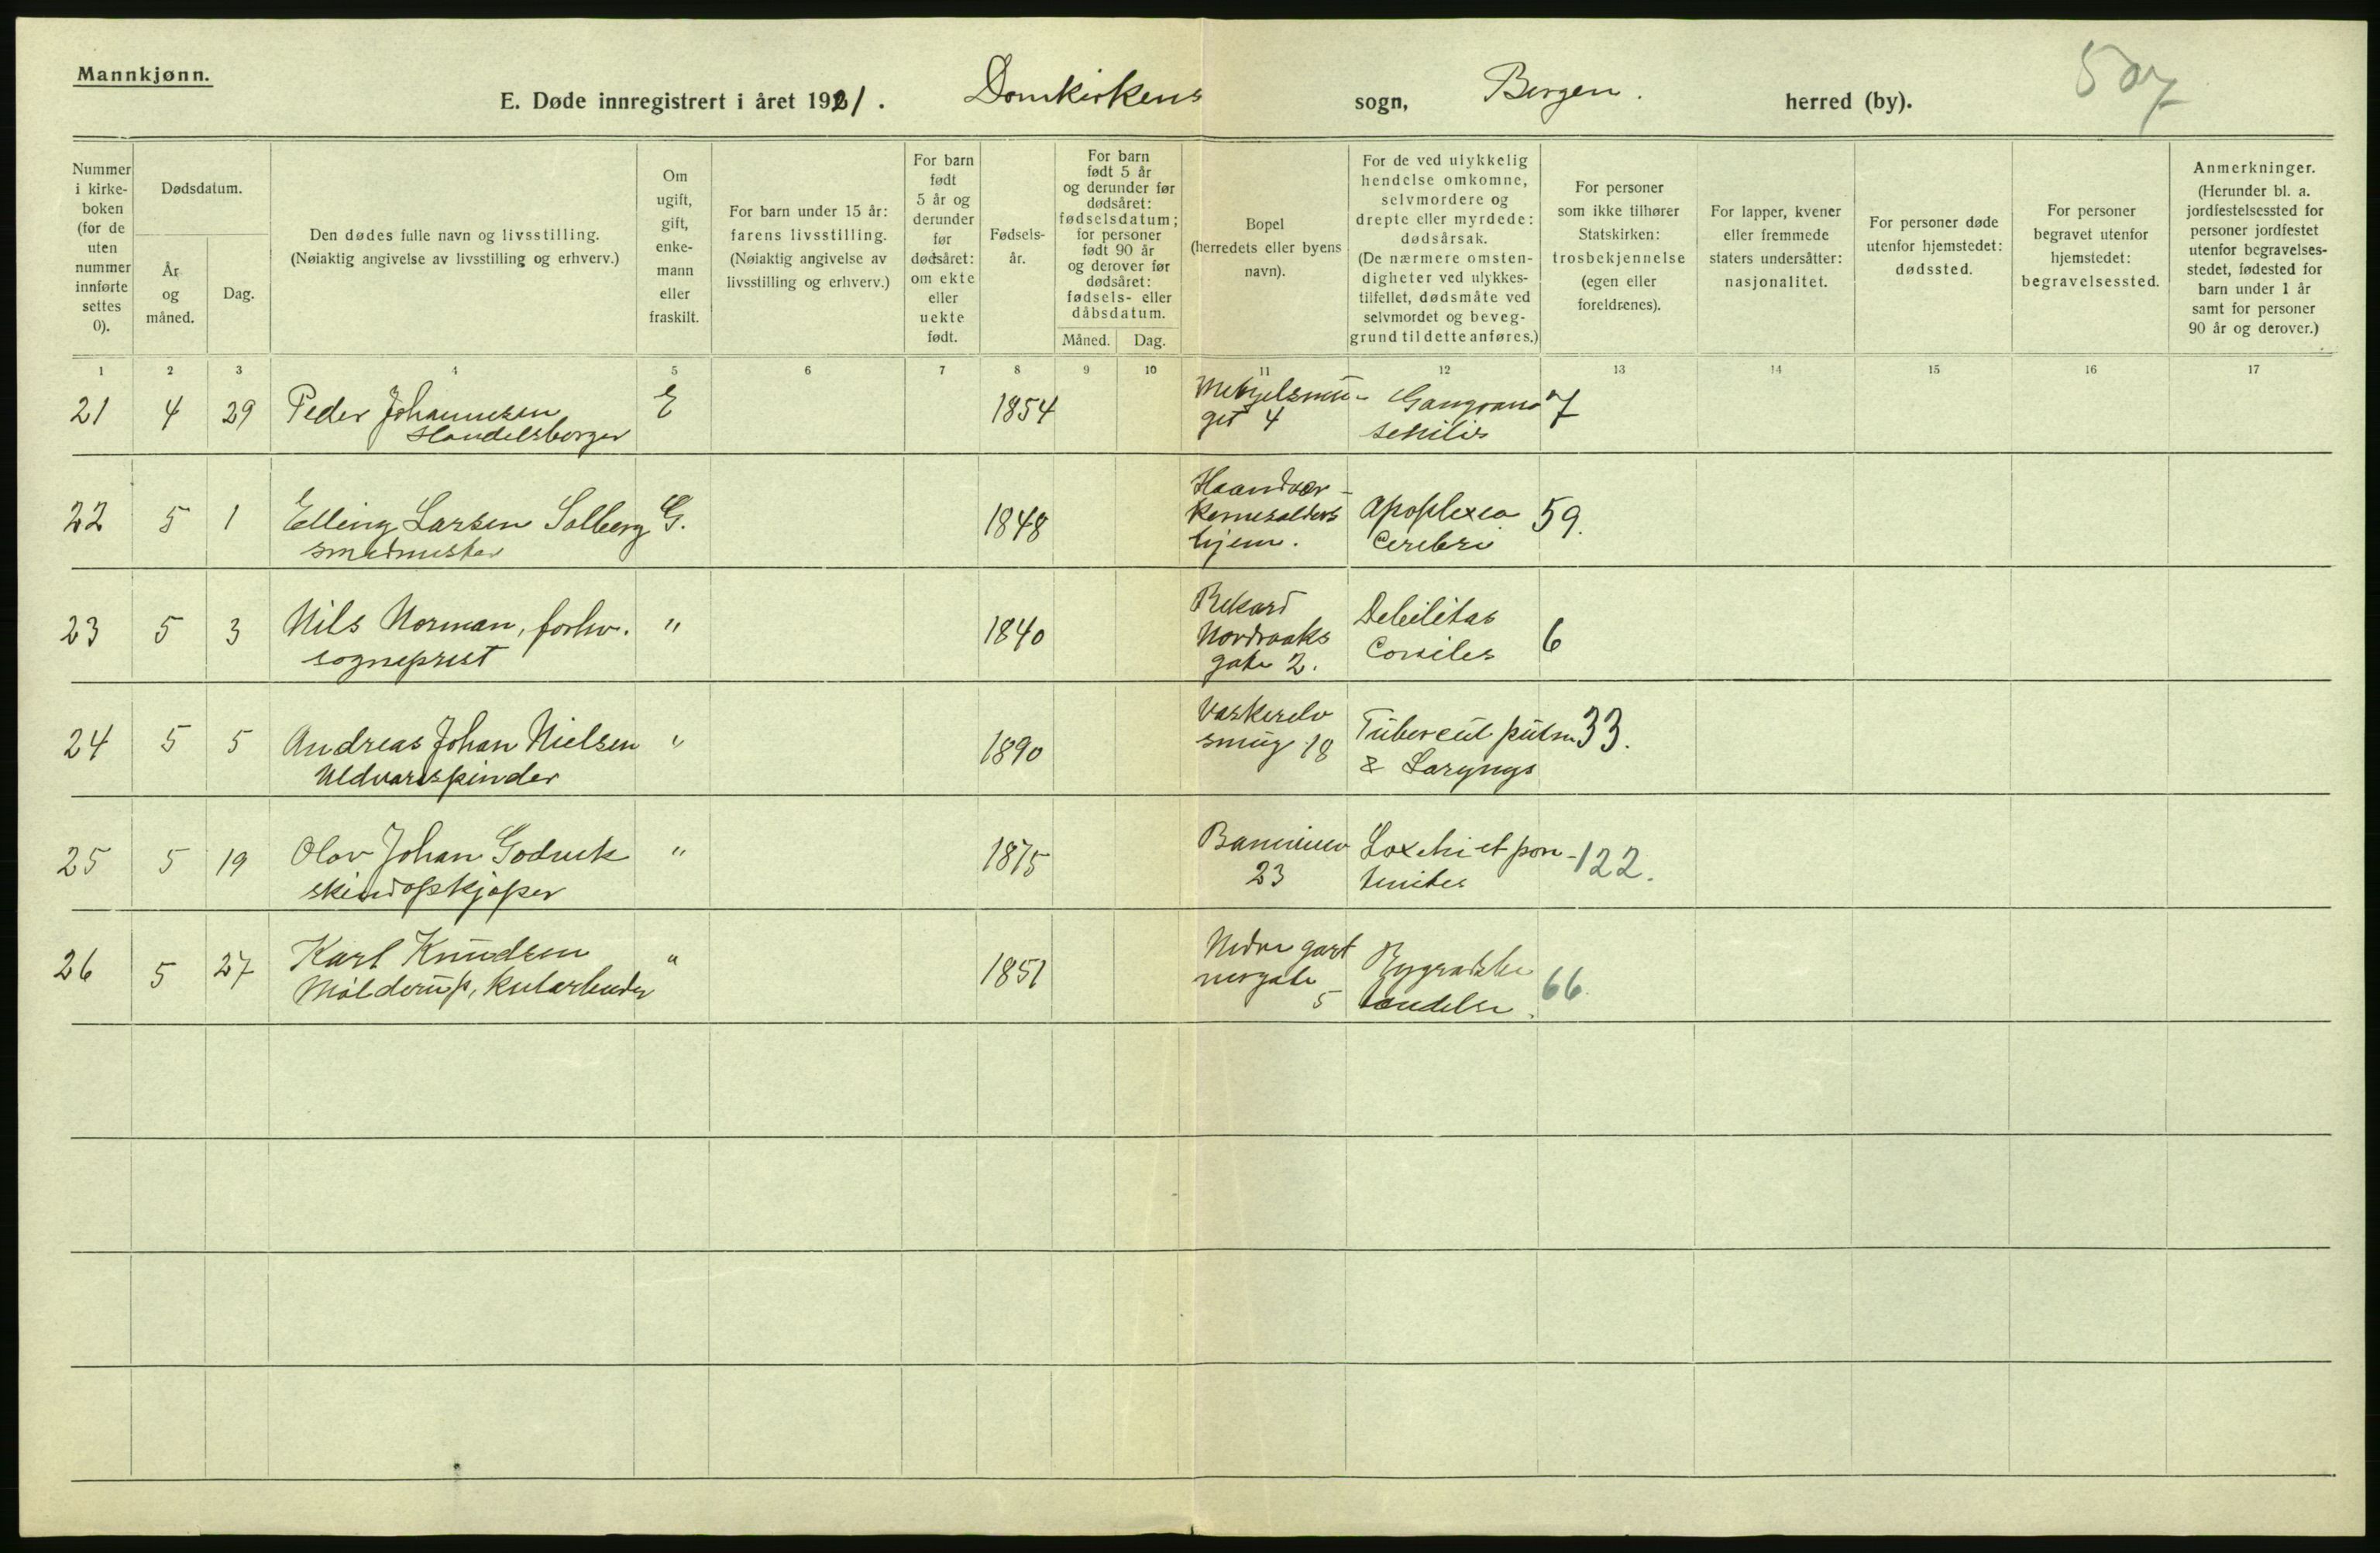 Mannkjønn.
507
E. Døde innregistrert i året 1921. Domkirkens sogn, Bergen. herred (by).
Nummer i kirkeboken (for de uten nummer innførte settes 0).
Dødsdatum.
År og måned.
Dag.
Den dødes fulle navn og livsstilling.
(Nøiaktig angivelse av livsstilling og erhverv.)
Om ugift, gift, enkemann eller fraskilt.
For barn under 15 år: farens livsstilling. (Nøiaktig angivelse av livsstilling og erhverv.)
For barn født 5 år og derunder før dødsåret: om ekte eller uekte født.
Fødselsår.
For barn født 5 år og derunder før dødsåret: fødselsdatum; for personer født 90 år og derover før dødsåret: fødsels- eller dåbsdatum.
Måned. Dag.
Bopel (herredets eller byens navn).
For de ved ulykkelig hendelse omkomne, selvmordere og drepte eller myrdede: dødsårsak. (De nærmere omstendigheter ved ulykkestilfellet, dødsmåte ved selvmordet og beveggrund til dette anføres.)
For personer som ikke tilhører Statskirken: trosbekjennelse (egen eller foreldrenes).
For lapper, kvener eller fremmede staters undersåtter: nasjonalitet.
For personer døde utenfor hjemstedet: dødssted.
For personer begravet utenfor hjemstedet: begravelsessted.
Anmerkninger. (Herunder bl. a. jordfestelsessted for personer jordfestet utenfor begravelsesstedet, fødested for barn under 1 år samt for personer 90 år og derover.)
1 2 3 4 5 6 7 8 9 10 11 12 13 14 15 16 17
21 4 29 Peder Johannesen E 1854 Gangræna 7
Handelsborger get 4 senilis
22 5 1 Elling Larsen Solberg G. 1848 Haandvær- Apoplexia 59.
smedmester kernesalders Cerebri
hjem.
23 5 3 Nils Norman, forhv. " 1840 Rikard Debilitas 6
sogneprest Nordraaks
gate 2.
24 5 5 Andreas Johan Nielsen " 1890 Vaskerelv Tubercul pulm 33.
Uldvarespinder smug 18 & Laryngs
25 5 19 Olov Johan Godvik " 1875 122.
skindopkjøper 23
26 5 27 Karl Knudsen " 1851 Nedre gart Rygradsbe 66.
nergate 5 tændelse.